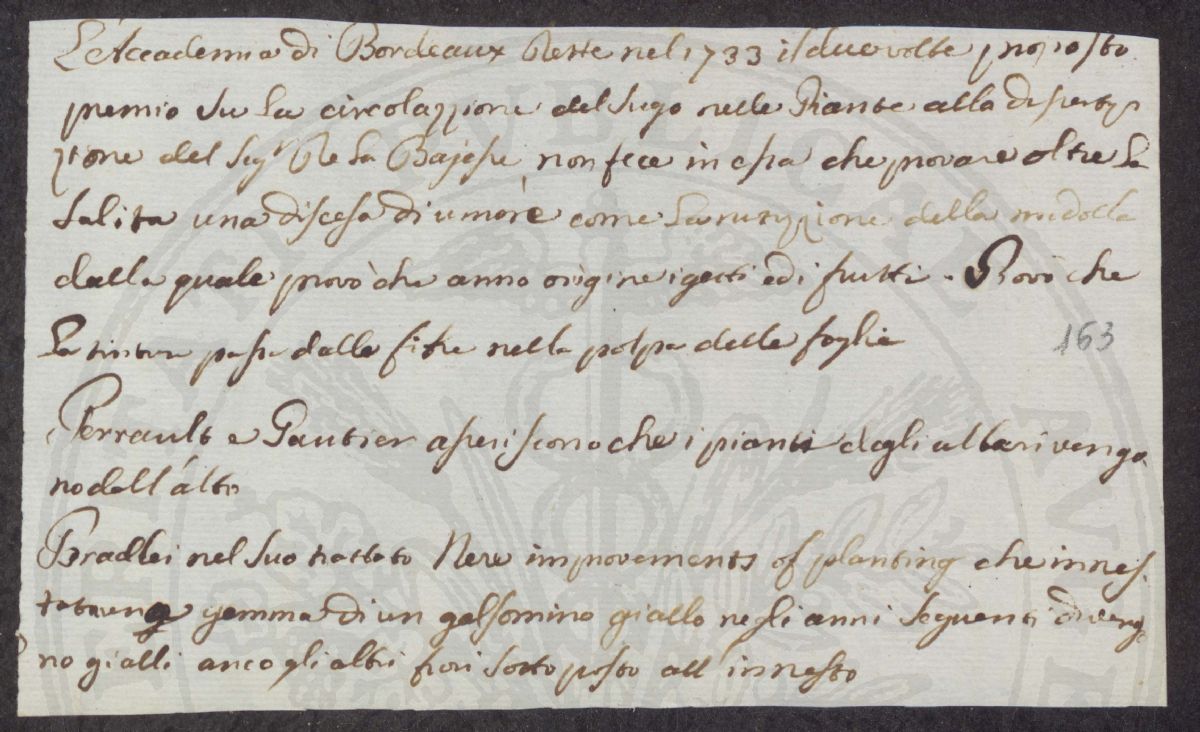 L'Accademia di Bordeaux dette nel 1733 il due volte proposto
premio su la circolazzione del sugo nelle Piante alla disertaz
zione del Sigr De La Bajesse, non fece in essa che provare oltre la
salita una discesa di umore come la nutrizzione della midolla
dalla quale provò che anno origine i getti ed i frutti. Provò che
la tintura passa dalle fibre nella polpa delle foglie
163
Perrault e Gautier asseriscono che i pianti degli albari venga
no dell'alto
Bradlei nel suo trattato New improvements of planting che innes
gemma di un gelsomino giallo negli anni seguenti divenga
no gialli anco gli altri fiori sotto posto all'innesto